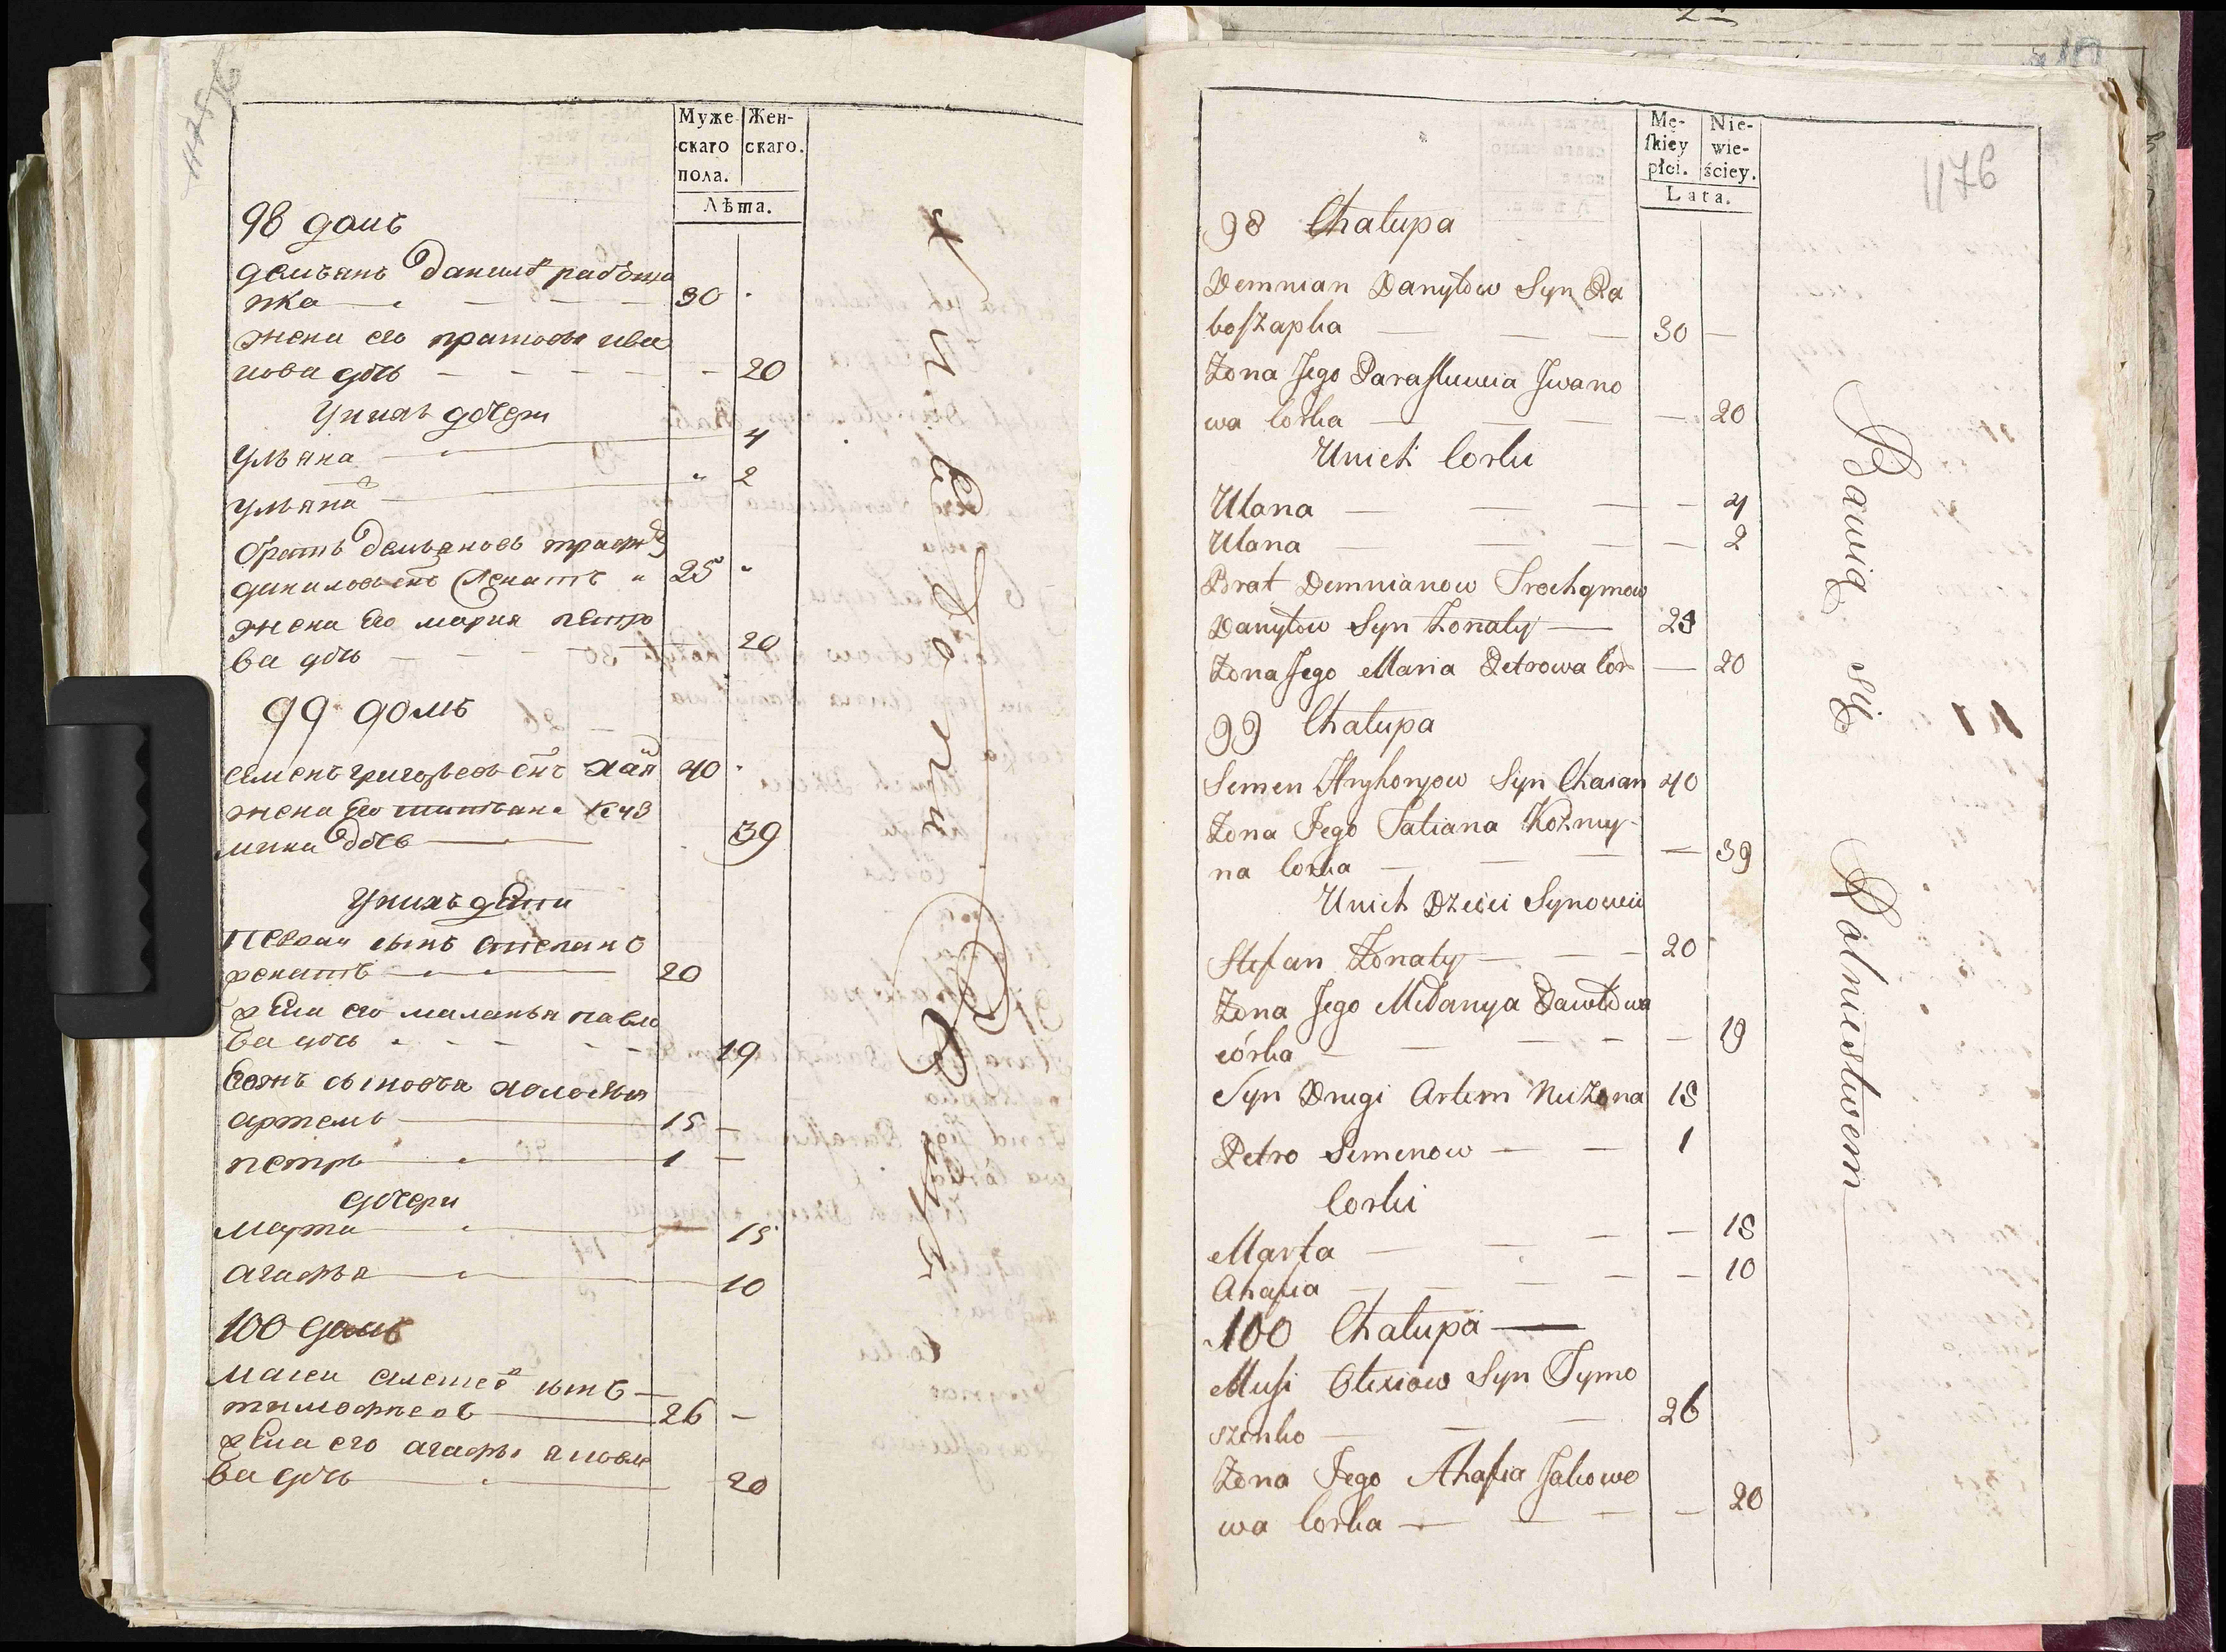 Муже-
скаго
пола.
Жен-
скаго.
Лѣта.
98 домъ
демъянъ данилов работа
пка 30
жена его прасковя ива
нова дочь 20
У нихъ дочери
Ульяна 4
ульяна 2
братъ демьяновъ трофим
данилов снъ женатъ 25
жена его мария петро
ва дочь 20
99 домъ
семенъ григорьевъ снъ хаян 40
жена его татьяна козь
мина дочь 39
У нихъ дети
первой сынъ степанъ
женатъ 20
жена его маланья павло
ва дочь 19
сынъ
артемъ 15
петръ 1
дочери
марта 15
агафья 10
100 домъ
алексеев сынъ
тимофеевъ 26
жена его агафья яковле
ва дочь 20
1176
Mę-
ſkiey
płci.
Nie-
wie-
ściey.
Lata.
98 Chałupa
Demnian Danyłow Syn Ra
boſzapka 30
Żona Jego Paraſkiwia Jwano
wa Corka 20
U nich Corki
Ulana 4
Ulana 2
Brat Demnianow Trochym
Danyłow Syn Żonaty 25
Żona Jego Maria Petrowa Cor 20
99 Chałupa
Semen Hryhoryow Syn Chaian 40
Żona Jego Tatiana Kozmy-
na Corka 39
U nich Dzieci Synowie
Stefan Żonaty 20
Żona Jego Mełanya Pawłowa
córka 19
Syn Drugi Artem Nieżona 15
Petro Semenow 1
Corki
Marta 15
Ahafia 10
100 Chałupa
Musi Olexiow Syn Tymo
szenko 26
Żona Jego Ahafia Jakowe
wa Corka 20
Bawią się Rolniestwem